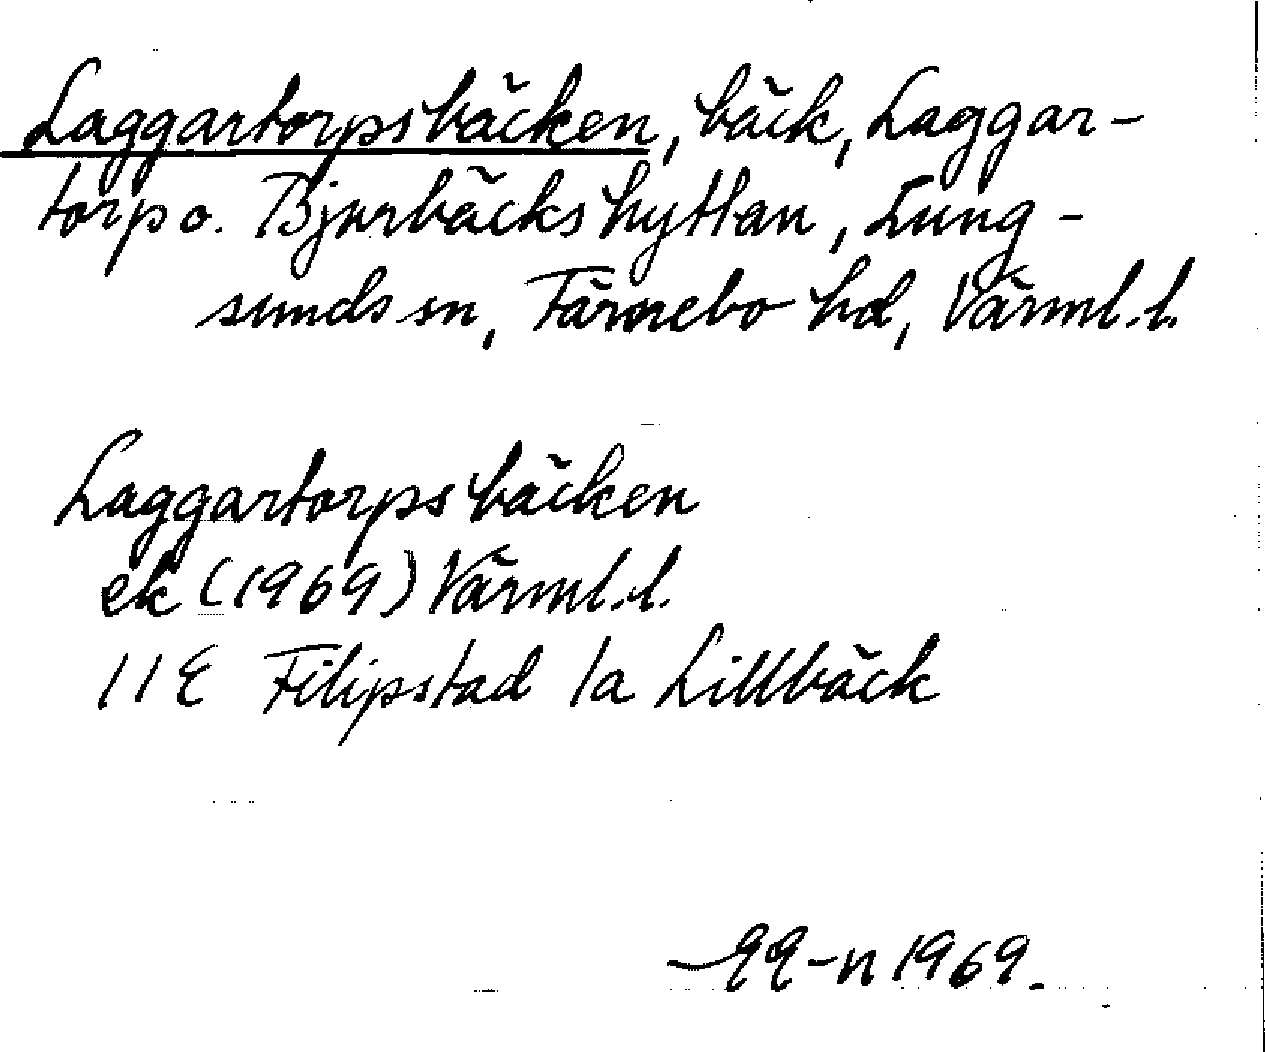 Laggartorpsbäcken, bäck, Laggar-
torp o. Bjurbäckshyttan, Lung-
sunds sn, Färnebo hd, Värml.l.
Laggartorpsbäcken
ek (1969) Värml.l.
11E Filipstad 1a Lillbäck
1969.